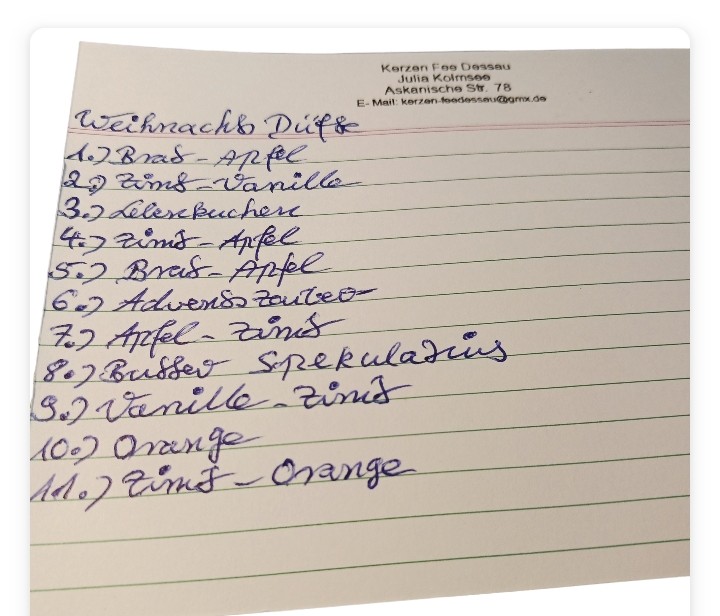 Kerzen Fee Dessau
Julia Kolmsee
Askanische Str. 78
E- Mail: kerzen-feedessau@gmx.de
Weihnachts Düfte
1.) Brat-Apfel
2.) Zimt-Vanille
3.) Lebenkuchen
4.) Zimt-Apfel
5.) Brat-Apfel
6.) Adventszauber
7.) Apfel-Zimt
8.) Butter Spekulatius
9.) Vanille-Zimt
10.) Orange
11.) Zimt-Orange